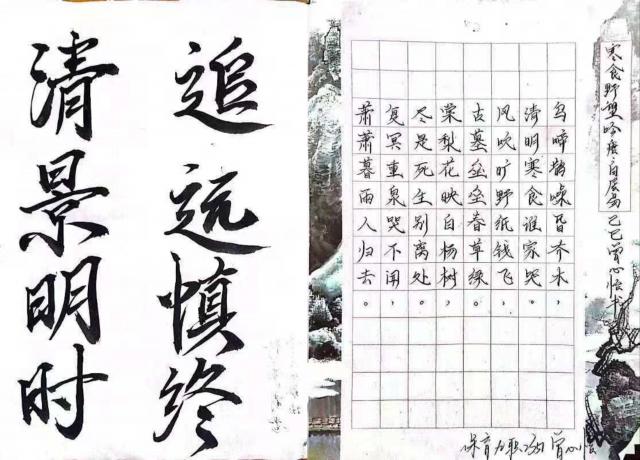 追远慎终
清景明时
寒食野望吟 唐 白居易 曾心怡书
乌啼鹊噪昏乔木，
清明寒食谁家哭。
风吹旷野纸钱飞，
古墓垒垒春草绿。
棠梨花映白杨树，
尽是死生别离处。
复冥重泉哭不闻，
萧萧暮雨人归去。
保育 曾心怡